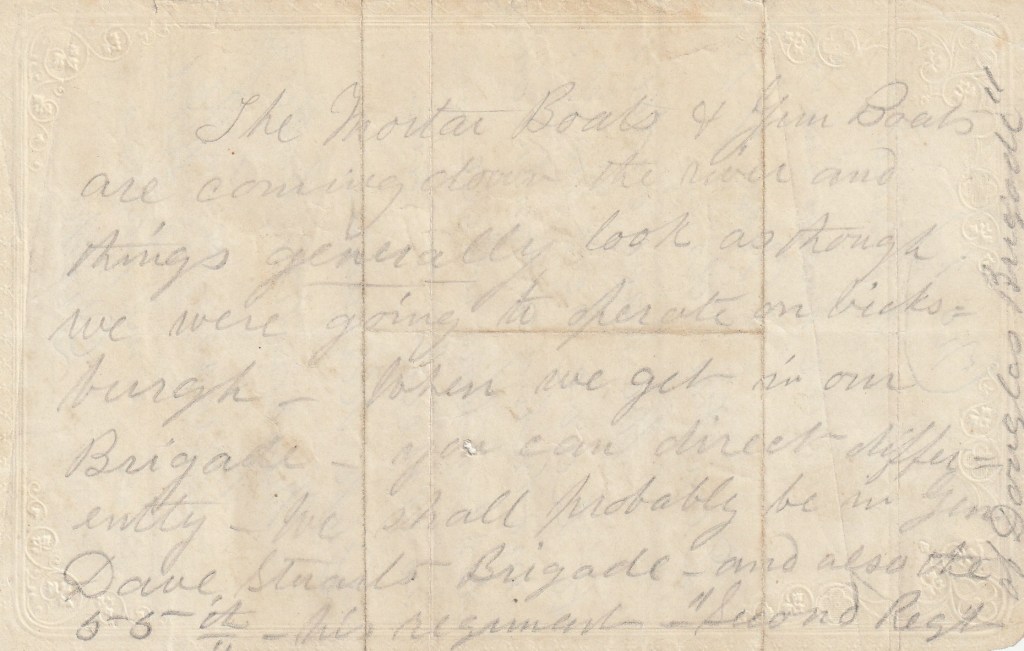 The Mortar Boats & Gun Boats
are coming down the river and
things generally look as though
we were going to operate on vicks=
burgh - When we get in our
Brigade - you can direct differ=
ently - We shall probably be in Gen
Dave Stuarts Brigade - and also the
55 it - his regiment - "Second Regt
of Douglas Brigade"